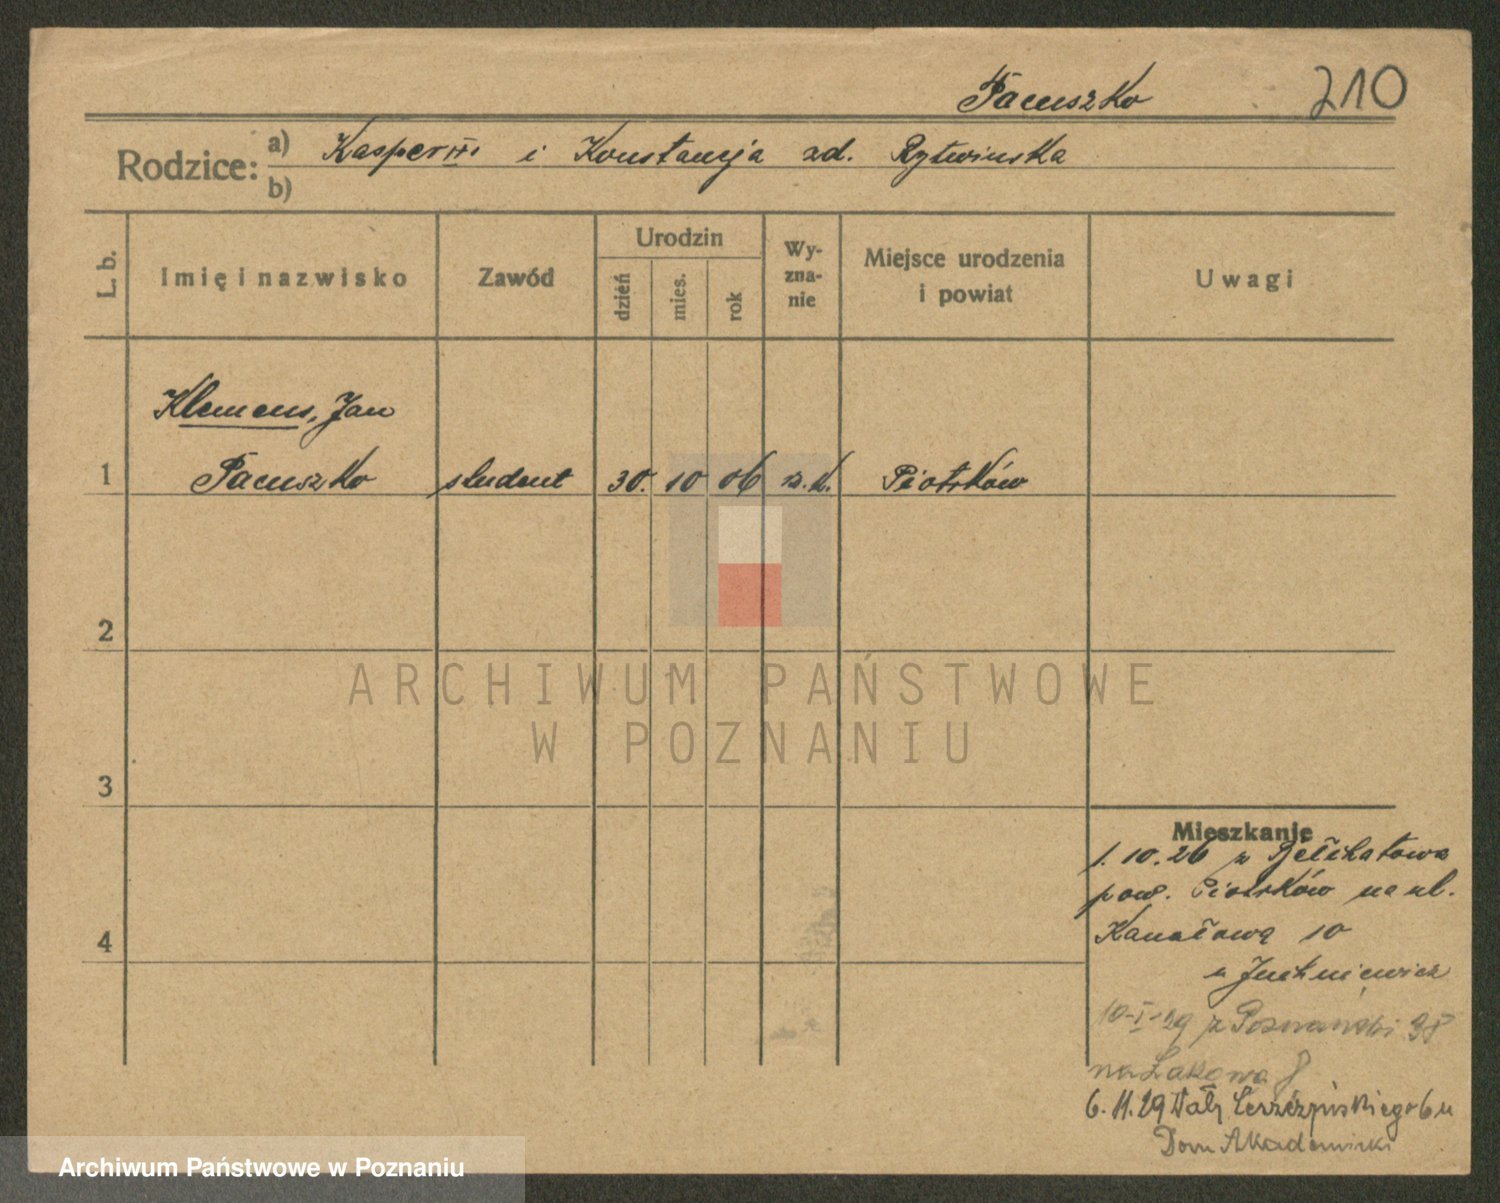 Pacuszko 210
Rodzice: a) Kasper i Konstancja zd. Rytwinska
b)
L. b.
Imię i nazwisko
Zawód
Urodzin
dzień
mies.
rok
Wy-
zna-
nie
Miejsce urodzenia
i powiat
Uwagi
Klemens, Jan
1 Pacuszko student 30. 10 06 rz. k. Piotrków
2
3
4
ARCHIWUM PAŃSTWOWE
W POZNANIU
Mieszkanie
1. 10. 26 z
pow. Piotrków na ul.
Kanałową 10
u Juchniewicz
10-I-29 z
na Łąkowa 8
6. 11. 29 Wały 6 u
Dom Akademicki
Archiwum Państwowe w Poznaniu